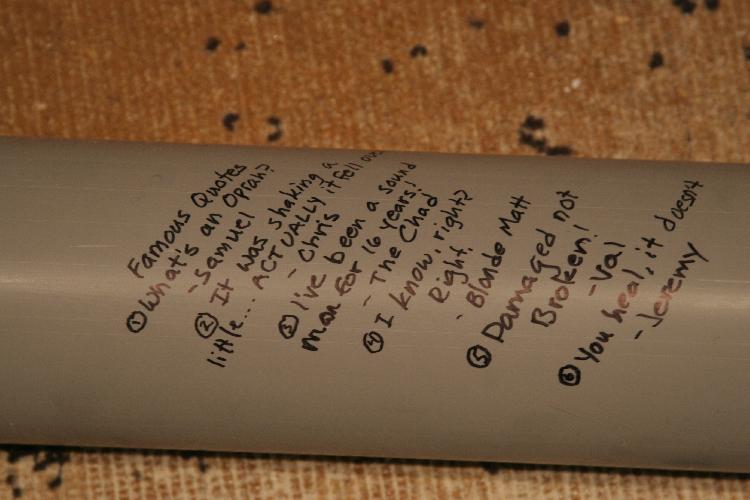 Famous Quotes
① What's an Oprah?
- Samuel
② It was shaking a
little... ACTUALLY it fell
- Chris
③ I've been a sound
man for 16 years!
- The Chad
④ I know, right?
Right.
- Blonde Matt
⑤ Damaged not
Broken!
- Val
⑥ You heal, it doesn't
- Jeremy